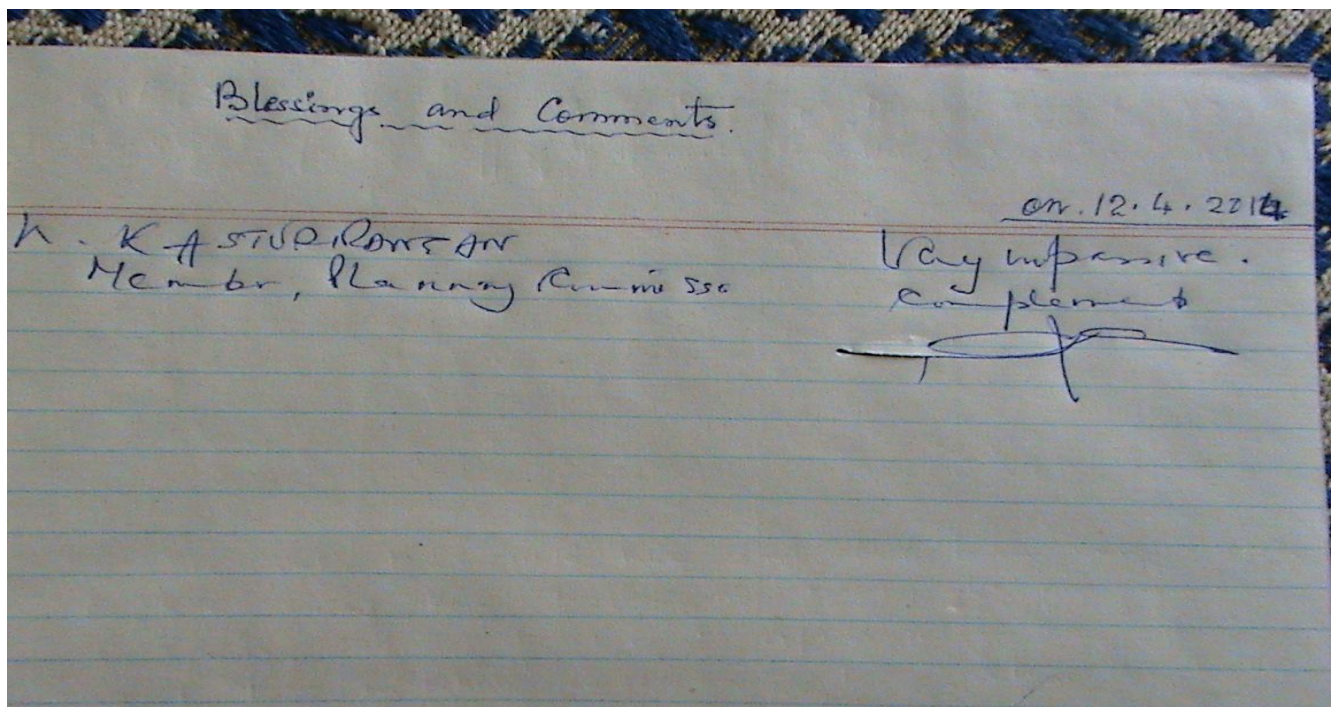 Blessings and Comments.
on. 12.4.2014
K. KASTURIRANGAN
Member, Planning Commisso
Very impressive.
Complement